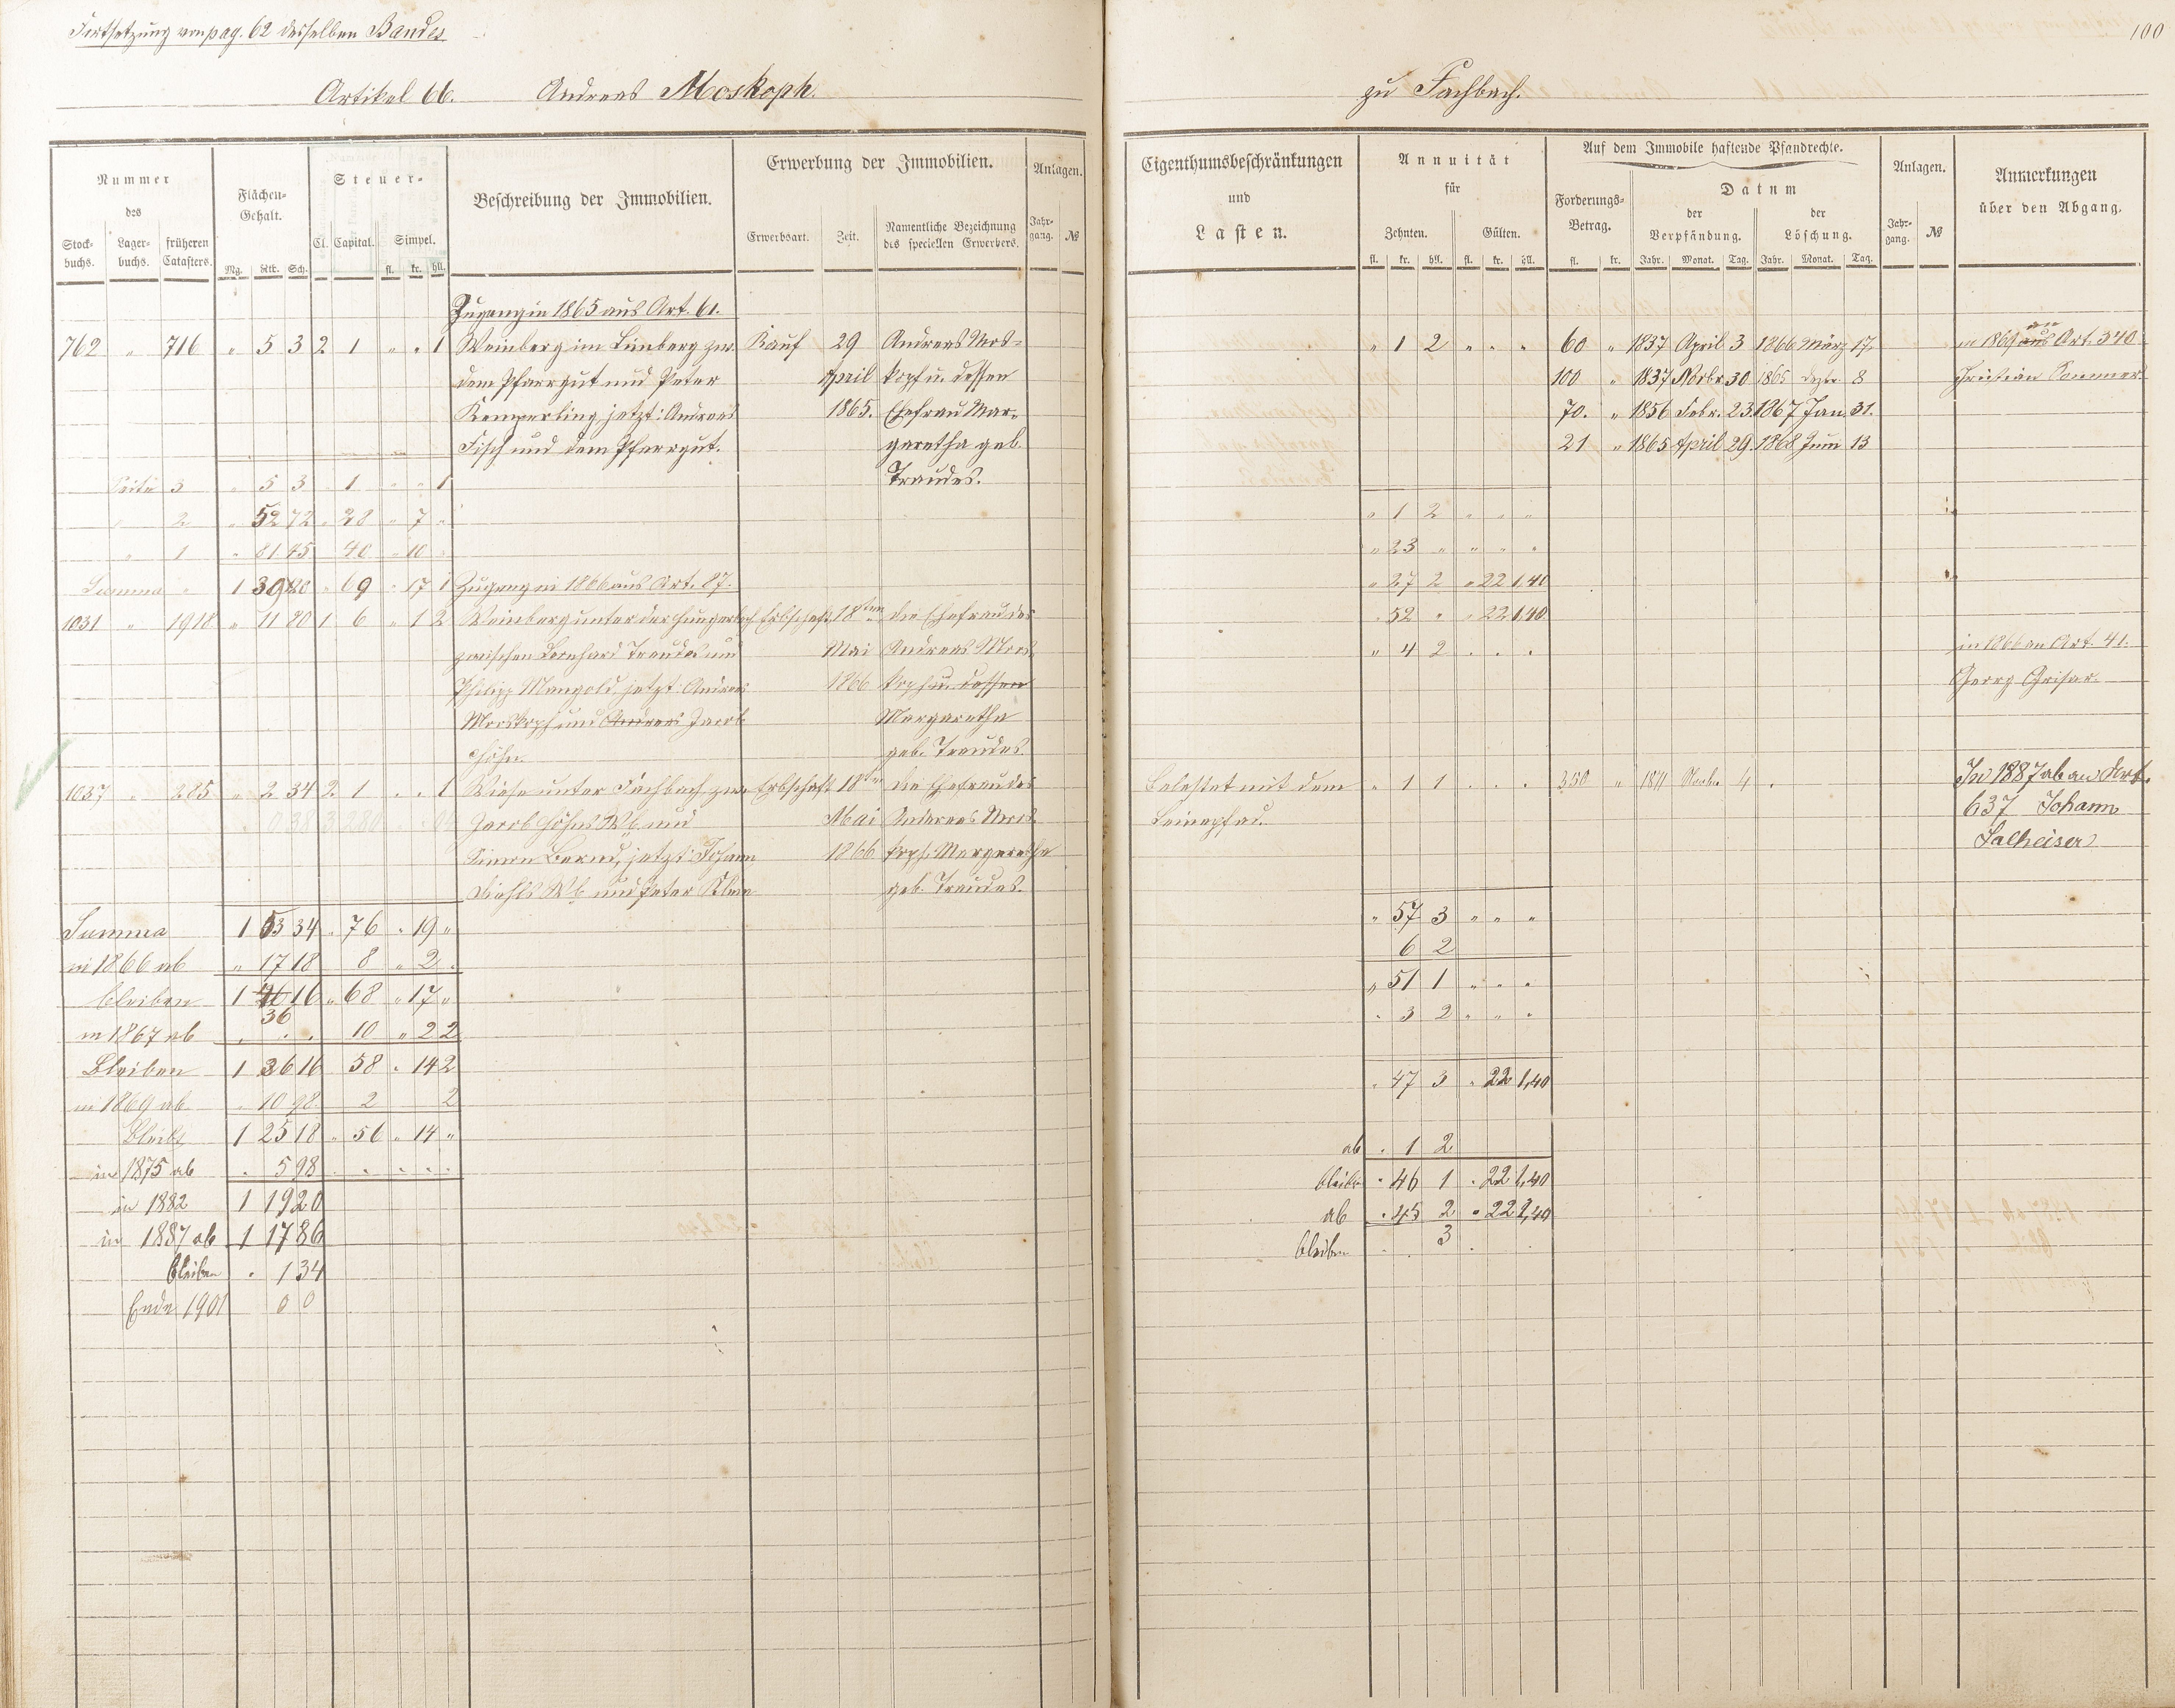 Fortsetzung von pag. 62 desselben Bandes
100
Artikel 66. Andreas Moskoph.
zu Fachbach.
Nummer des
Stockbuchs. Lagerbuchs. früheren Catasters.
Flächen-Gehalt.
Mg. Rth. Sch.
Steuer-
Cl. Capital. Simpel.
fl. kr. hll.
Beschreibung der Immobilien.
Erwerbung der Immobilien.
Erwerbsart. Zeit. Namentliche Bezeichnung des speciellen Erwerbers.
Anlagen.
Jahrgang. №
Eigenthumsbeschränkungen
und
Lasten.
Annuität
für
Zehnten. Gülten.
fl. kr. hll. fl. kr. hll.
Auf dem Immobile haftende Pfandrechte.
Forderungs-Betrag.
fl. kr.
Datum
der Verpfändung. der Löschung.
Jahr. Monat. Tag. Jahr. Monat. Tag.
Anlagen.
Jahrgang. №
Anmerkungen
über den Abgang.
Zugang in 1865 aus Art. 61.
762 " 716 " 5 3 2 1 " " 1 Weinberg im Limberg zw. Kauf 29 Andreas Mos- " 1 2 " " " 60 " 1837 April 3 1866 März 17. in 1869 an aus Art. 340
dem Pfarrgut und Peter April kopf u. dessen 100 " 1837 Novbr 30 1865 Dezbr 8 Christian Sommer
Kemperling, jetzt: Andreas 1865. Ehefrau Mar- 70. " 1856 Febr. 23 1867 Jan. 31.
Fisch und dem Pfarrgut. garetha geb. 21 " 1865 April 29. 1868 Juni 13
Seite 3 " 5 3 " 1 " " 1 Traudes.
" 2 " 52 72 " 28 " 7 " " 1 2 " " "
" 1 " 81 45 40 " 10 " " 23 " " " "
Summa " 1 39 20 " 69 " 17 1 Zugang in 1866 aus Art. 87. " 27 2 " 22 1,40
1031 " 1918 " 11 80 1 6 " 1 2 Weinberg unter der Erbschaft 18ten die Ehefrau des " 52 " " 22 1,40
zwischen Bernhard Traudes und Mai Andreas Mos- " 4 2 " " " in 1866 an Art. 41.
Philipp Mangold, jetzt: Andreas 1866 kopf u. dessen Georg Grisar
Moskopf und Andreas Jacob Margaretha
Höhn. geb. Traudes.
1037 " 285 " 2 34 2 1 " " 1 Wiese unter Fachbach zw. Erbschaft 18ten die Ehefrau des Belastet mit dem " 1 1 " " " 350 " 1811 4 In 1887 ab an Art.
Jacob Höhns Wb. und Mai Andreas Mos- Leinepfad. 637 Johann
Simon Bernd, jetzt: Johann 1866 koph Margaretha Salheiser
Diehls Wb. und Peter Klein geb. Traudes.
Summa 1 53 34 " 76 " 19 " " 57 3 " " "
in 1866 ab " 17 18 8 " 2 " 6 2
bleiben 1 36 16 " 68 " 17 " " 51 1 " " "
in 1867 ab " " " 10 " 2 2 " 3 2 " " "
Bleiben 1 36 16 58 " 14 2 " 47 3 " 22 1,40
in 1869 ab " 10 98 2 2
Bleibt 1 25 18 " 56 " 14 " ab " 1 2
in 1875 ab " 5 98 " " " " bleiben " 46 1 " 22 1,40
in 1882 1 19 20 ab " 45 2 " 22 1,40
in 1887 ab 1 17 86 bleiben " " 3 "
bleiben " 1 34
Ende 1901 0 0